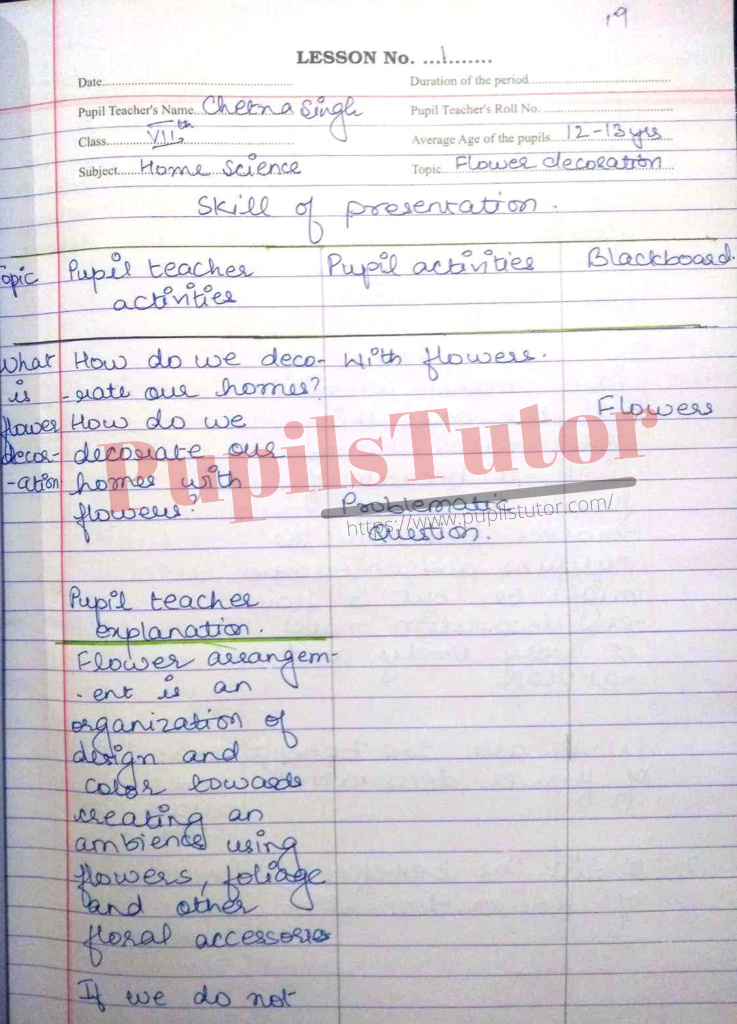 19
LESSON No. ...1.......
Date........ Duration of the period........
Pupil Teacher's Name...Cheena Singh Pupil Teacher's Roll No. ........
Class........VIIth Average Age of the pupils...12-13 yrs
Subject.......Home Science Topic...Flower decoration
Skill of presentation.
Topic Pupil teacher Pupil activities Blackboard.
activities
What How do we deco- With flowers.
is -rate our homes?
flower How do we Flowers
decor- decorate our
-ation homes with
flowers? Problematic
Question.
PupilsTutor
https://www.pupilstutor.com/
Pupil teacher
explanation.
Flower arrangem-
-ent is an
organization of
design and
color towards
creating an
ambience using
flowers, foliage
and other
floral accessories
If we do not